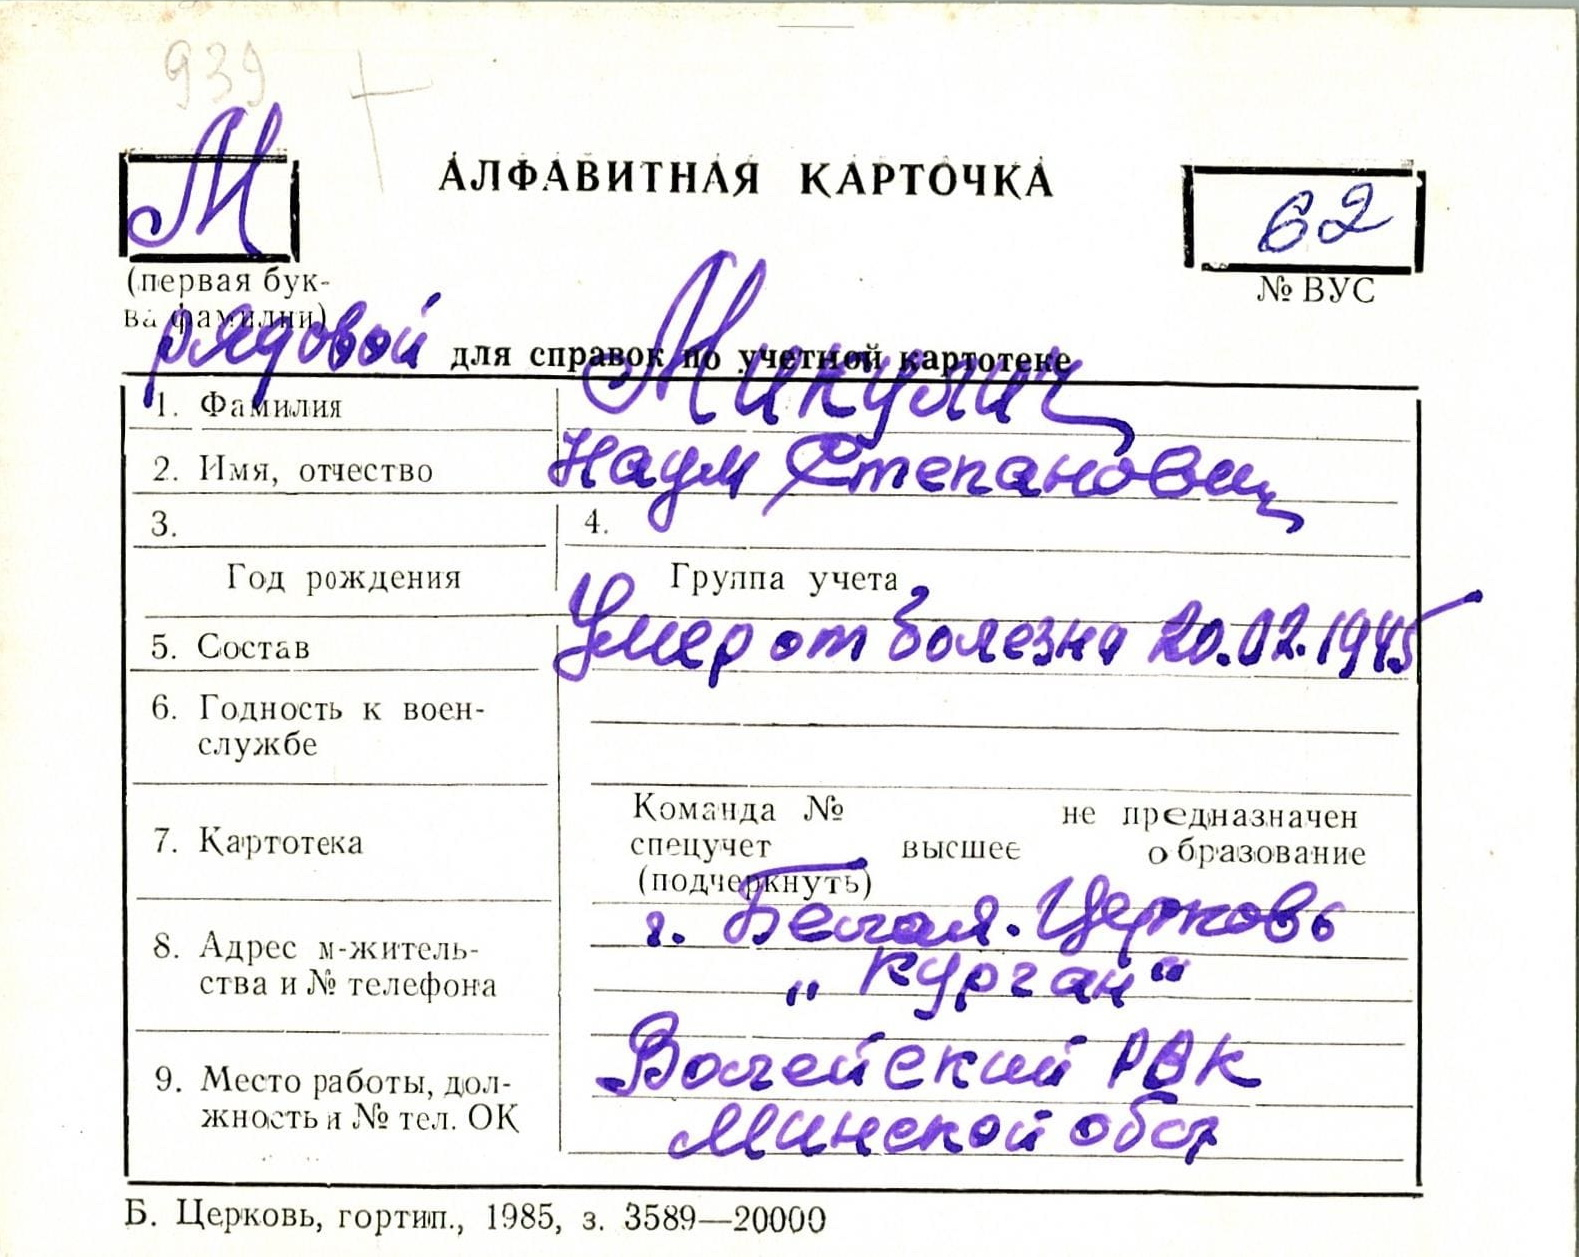 939
М
АЛФАВИТНАЯ КАРТОЧКА
62
(первая бук-
ва фамилии)
№ ВУС
рядовой для справок по учетной картотеке
1. Фамилия Микулич
2. Имя, отчество Наум Степанович
3. 4.
Год рождения Группа учета
5. Состав Умер от болезни 20.02.1945
6. Годность к воен-
службе
7. Картотека
Команда № не предназначен
спецучет высшее образование
(подчеркнуть)
8. Адрес м-житель-
ства и № телефона
г. Белая-Церковь
„Курган“
9. Место работы, дол-
жность и № тел. ОК
Волейский РВК
Минской обл
Б. Церковь, гортип., 1985, з. 3589—20000